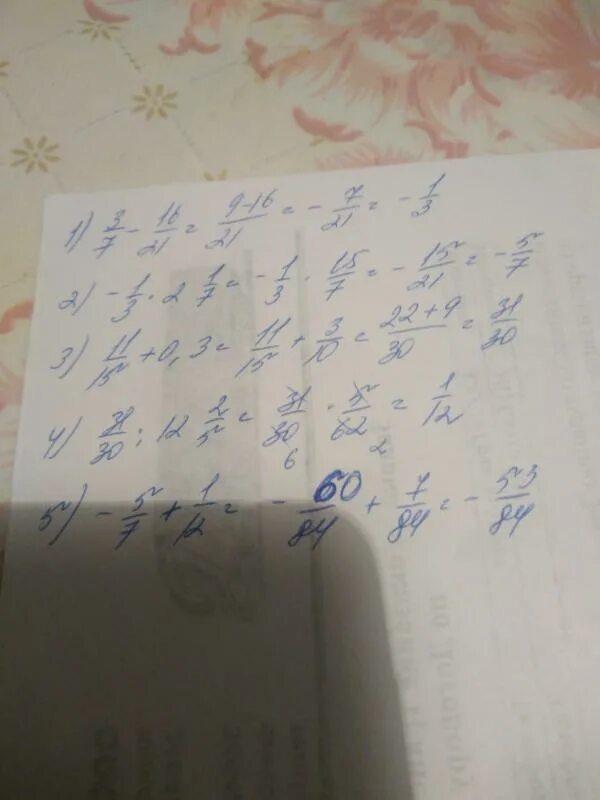 1) 3/7 - 16/21 = 9-16/21 = - 7/21 = - 1/3
2) - 1/3 · 2 1/7 = - 1/3 · 15/7 = - 15/21 = - 5/7
3) 11/15 + 0,3 = 11/15 + 3/10 = 22+9/30 = 31/30
4) 31/30 : 12 2/5 = 31/30 · 5/62 = 1/12
6 2
5) - 5/7 + 1/12 = - 60/84 + 7/84 = - 53/84